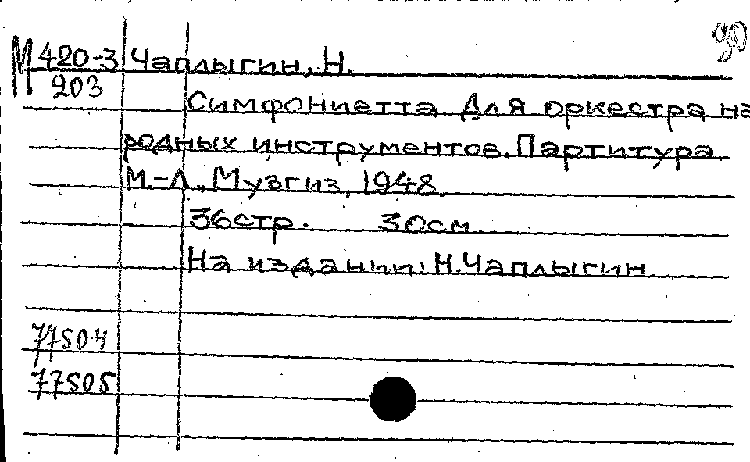 30
М 420-3 Чаплыгин, Н.
203
Симфониетта для оркестра на
родных инструментов. Партитура
М.-Л., Музгиз, 1948.
36стр. 30см
На издании: Н.Чаплыгин
77504
77505